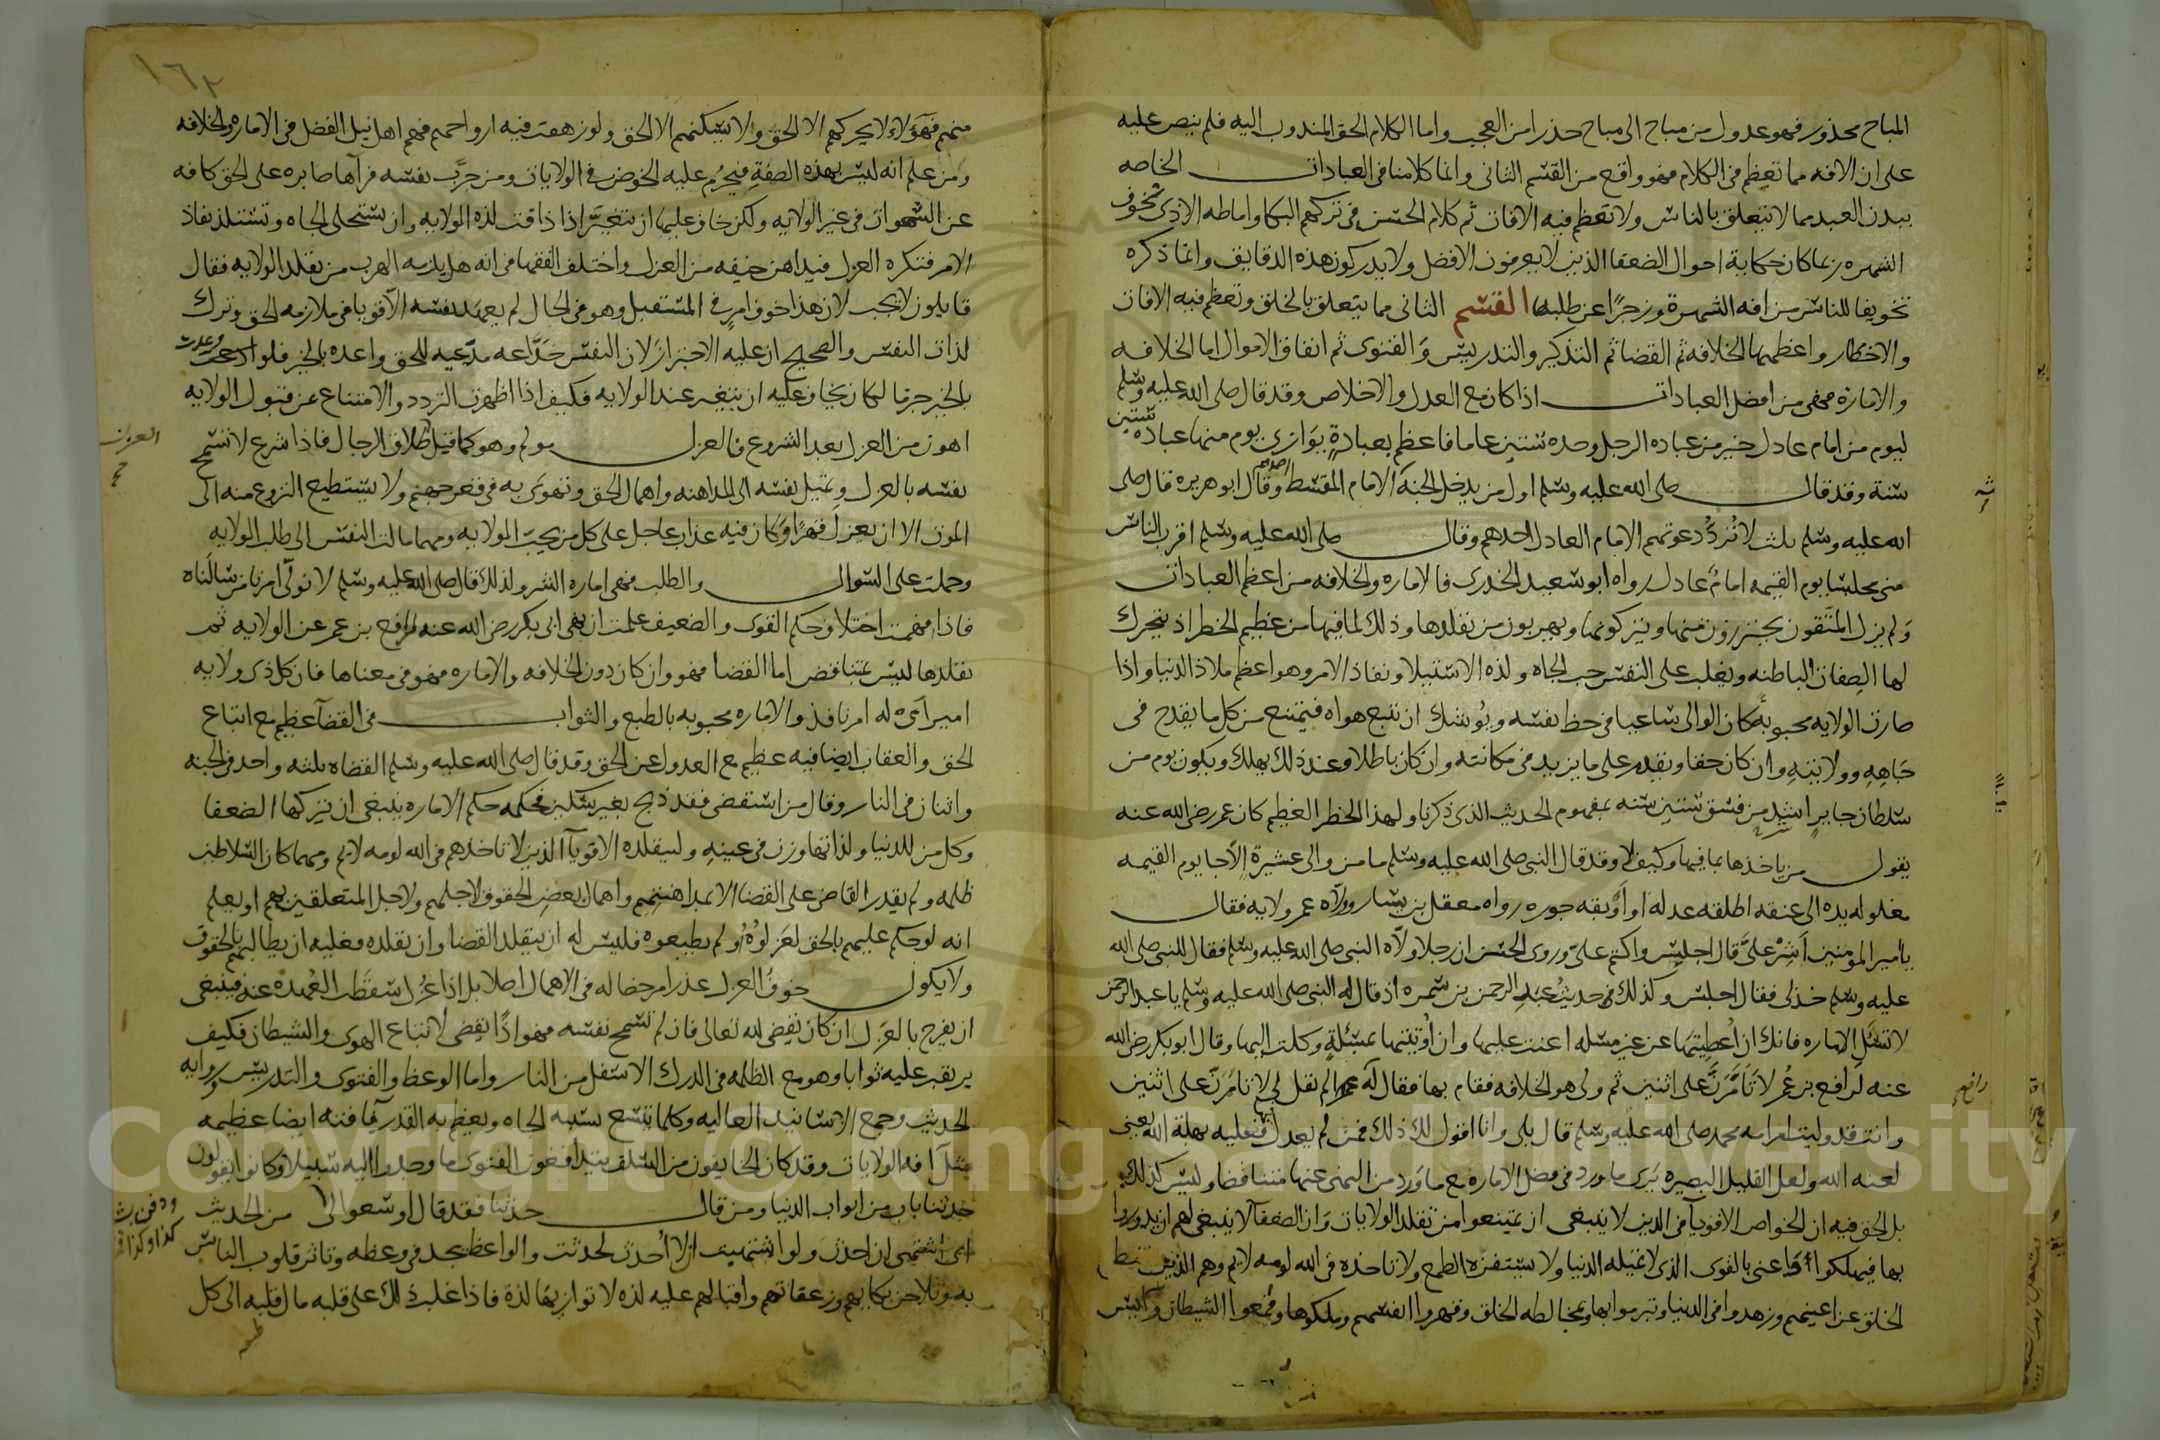 المباح محذور فهو عدول من مباح الى مباح حذرا من العجب واما الكلام الحق المندوب اليه فلم ينص عليه
على ان الافه مما تعظم فى الكلام فهو واقع من القسم الثانى وانما كلامنا فى العبادات الخاصه
ببدن العبد مما لا يتعلق بالناس ولا تعظم فيه الافات ثم كلام الحسن فى تركهم البكا واماطه الاذى لخوف
الشهره ربما كان حكاية احوال الضعفا الذين لا يعرفون الافضل ولا يدركون هذه الدقايق وانما ذكره
تخويفا للناس من افه الشهرة وزجرا عن طلبها القسم الثانى مما يتعلق بالخلق وتعظم فيه الافات
والاخطار واعظمها الخلافه ثم القضا ثم التذكير والتدريس والفتوى ثم انفاق الاموال اما الخلافه
والامارة فهى من افضل العبادات اذا كان مع العدل والاخلاص وقد قال صلى الله عليه وسلم
ليوم من امام عادل خير من عباده الرجل وحده ستين عاما فاعظم بعبادة يوازى يوم منها عباده ستين
سنة وقد قال صلى الله عليه وسلم اول من يدخل الجنة الامام المقسط احدهم وقال ابو هريره قال صلى
الله عليه وسلم ثلث لا ترد دعوتهم الامام العادل احدهم وقال صلى الله عليه وسلم اقرب الناس
منى مجلسا يوم القيمه امام عادل رواه ابو سعيد الخدرى فالاماره والخلافه من اعظم العبادات
ولم يزل المتقون يحترزون منها ويتركونها ويهربون من تقلدها وذلك لما فيها من عظيم الخطر اذ يتحرك
لها الصفات الباطنه ويغلب على النفس حب الجاه ولذه الاستيلا ونفاذ الامر وهو اعظم ملاذ الدنيا واذا
صارت الولايه محبوبه كان الوالى ساعيا فى حظ نفسه ويوشك ان يتبع هواه فيمتنع من كل ما يقدح فى
جاهه وولايته وان كان حقا ويقدم على ما يزيد فى مكانته وان كان باطلا وعند ذلك يهلك ويكون يوم من
سلطان جاير اشد من فسق ستين سنه بمفهوم الحديث الذى ذكرنا ولهذا الخطر العظيم كان عمر رضى الله عنه
يقول من ياخذها بما فيها وكيف لا وقد قال النبى صلى الله عليه وسلم ما من والى عشيرة الا جا يوم القيمه
مغلوله يده الى عنقه اطلقه عدله او اوبقه جوره رواه معقل بن يسار وولاه عمر ولايه فقال
يا امير المومنين اشر على قال اجلس واكتم على وروى الحسن ان رجلا ولاه النبى صلى الله عليه وسلم فقال للنبى صلى الله
عليه وسلم خذ لى فقال اجلس وكذلك فى حديث عبد الرحمن بن سمره اذ قال له النبى صلى الله عليه وسلم يا عبد الرحمن
لا تسئل الاماره فانك ان اعطيتها عن غير مسله اعنت عليها وان اوتيتها بمسئلة وكلت اليها وقال ابو بكر رضى الله
عنه لرافع بن عمر لا تامرن على اثنين ثم ولى هو الخلافه فقام بها فقال له الم تقل لى لا تامرن على اثنين
رافع
وانت قد وليت امر امه محمد صلى الله عليه وسلم قال بلى وانا اقول لك ذلك فمن لم يعدل فيها فعليه بهلة الله يعنى
لعنه الله ولعل القليل البصيره يرى ما ورد فى فضل الاماره مع ما ورد من النهى عنها متناقضا وليس كذلك
بل الحق فيه ان الخواص الاقويا فى الدين لا ينبغى ان يمتنعوا من تقلد الولايات وان الضعفا لا ينبغى لهم ان يدوروا
بها فيهلكوا واعنى بالقوى الذى لا تميله الدنيا ولا يستفزه الطمع ولا تاخذه فى الله لومه لايم وهم الذين سقط
الخلق عن اعينهم وزهدوا فى الدنيا وتبرموا بها وبمخالطه الخلق وقهروا انفسهم وملكوها وقمعوا الشيطان وايس
١٦٢
منهم فهولا لا يحركهم الا الحق ولا يسكنهم الا الحق ولو زهقت فيه ارواحهم فهم اهل نيل الفضل فى الاماره والخلافه
ومن علم انه ليس بهذه الصفة فيحرم عليه الخوض فى الولايات ومن جرب نفسه فرآها صابره على الحق كافه
عن الشهوات فى غير الولايه ولكن خاف عليها ان تتغير اذا ذاقت لذه الولايه وان تستحلى الجاه وتستلذ نفاذ
الامر فتكره العزل فيداهن خيفه من العزل واختلف الفقها فى انه هل يلزمه الهرب من تقلد الولايه فقال
قايلون لا يجب لان هذا خوف امر فى المستقبل وهو فى الحال لم يعهد نفسه الا قويا فى ملازمه الحق وترك
لذات النفس والصحيح ان عليه الاحتراز لان النفس خداعه مدعيه للحق واعده بالخير فلو وعدت
بالخير جزما لكان يخاف عليه ان يتغير عند الولايه فكيف اذا اظهرت التردد والامتناع عن قبول الولايه
اهون من العزل بعد الشروع فالعزل مولم وهو كما قيل طلاق الرجال فاذا شرع لا تسمح
العزل
نفسه بالعزل وتميل نفسه الى المداهنه واهمال الحق وتهوى به فى قعر جهنم ولا يستطيع النزوع منه الى
الموت الا ان يعزل قهرا وكان فيه عذاب عاجل على كل من يحب الولايه ومهما مالت النفس الى طلب الولايه
وحملت على السوال والطلب فهى اماره الشر ولذلك قال صلى الله عليه وسلم لا نولى امرنا من سالناه
فاذا فهمت اختلاف حكم القوى والضعيف علمت ان نهى ابى بكر رضى الله عنه لرافع بن عمر عن الولايه ثم
تقلدها ليس بمتناقض اما القضا فهو وان كان دون الخلافه والاماره فهو فى معناها فان كل ذى ولايه
امير اى له امر نافذ والاماره محبوبه بالطبع والثواب فى القضا عظيم مع اتباع
الحق والعقاب ايضا فيه عظيم مع العدول عن الحق وقد قال صلى الله عليه وسلم القضاه ثلثه واحد فى الجنه
واثنان فى النار وقال من استقضى فقد ذبح بغير سكين فحكمه حكم الاماره ينبغى ان يتركها الضعفا
وكل من للدنيا ولذاتها وزن فى عينه وليتقلده الاقويا الذين لا تاخذهم فى الله لومه لايم ومهما كان السلاطين
ظلمه ولم يقدر القاضى على القضا الا بمداهنتهم واهمال بعض الحقوق لاجلهم ولاجل المتعلقين بهم او يعلم
انه لو حكم عليهم بالحق لعزلوه او لم يطيعوه فليس له ان يتقلد القضا وان تقلده فعليه ان يطالبهم بالحقوق
ولا يكون خوف العزل عذرا مرخصا له فى الاهمال اصلا بل اذا عزل سقطت العهده عنه فينبغى
ان يفرح بالعزل ان كان يقضى لله تعالى فان لم تسمح نفسه فهو اذًا يقضى لاتباع الهوى والشيطان فكيف
يرتقب عليه ثوابا وهو مع الظلمه فى الدرك الاسفل من النار واما الوعظ والفتوى والتدريس وروايه
الحديث وجمع الاسانيد العاليه وكلما يتسع بسببه الجاه ويعظم به القدر فافته ايضا عظيمه
مثل افه الولايات وقد كان الخايفون من السلف يتدافعون الفتوى ما وجدوا اليه سبيلا وكانوا يقولون
حدثنا باب من ابواب الدنيا ومن قال حدثنا فقد قال اوسعوا لى من الحديث
انى اشتهى ان احدث ولو اشتهيت ان لا احدث لحدثت والواعظ يجد فى وعظه وتاثر قلوب الناس
به وتلاحق بكايهم وزعقاتهم واقبالهم عليه لذه لا توازيها لذة فاذا غلب ذلك على قلبه مال قلبه الى كل